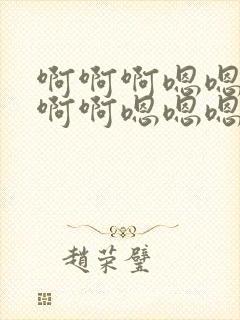 啊啊啊嗯嗯
啊啊嗯嗯嗯
趙荣璧